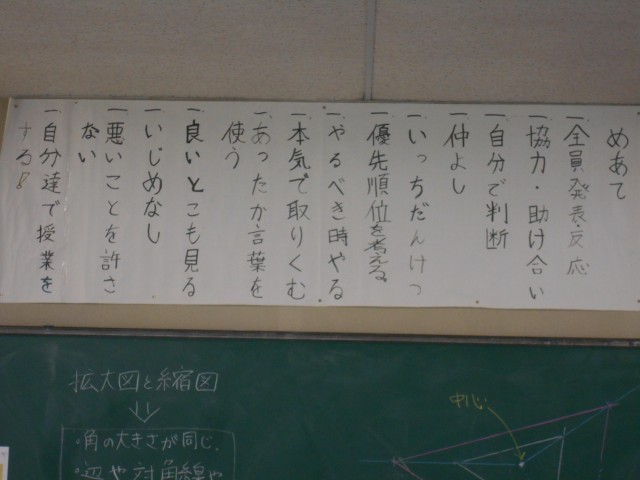 めあて
一全員発表・反応
一協力・助け合い
一自分で判断
一仲よし
一いっちだんけつ
一優先順位を考える。
一やるべき時やる
一本気で取りくむ
一あったか言葉を
使う
一良いとこも見る
一いじめなし
一悪いことを許さ
ない
一自分達で授業を
する!
拡大図と縮図
・角の大きさが同じ.
・辺や対角線や
中心